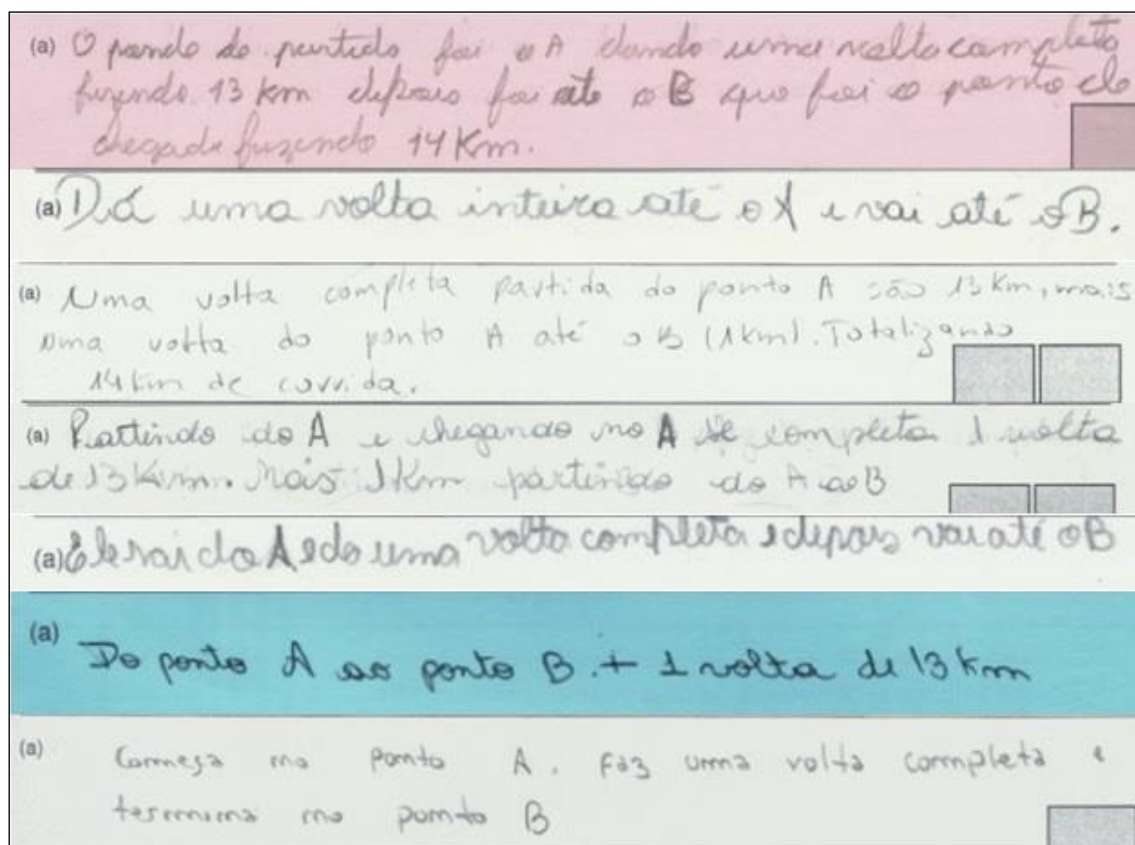 (a) O pondo do partido foi o A dando uma volta completa
fazendo 13 km depois foi até o B que foi o ponto de
chegada fazendo 14 Km.
(a) Dá uma volta inteira até o A e vai até o B.
(a) Uma volta completa partida do ponto A são 13 Km, mais
uma volta do ponto A até o B (1km). Totalizando
14 km de corrida.
(a) Partindo do A e chegando no A se completa 1 volta
de 13 Km. Mais 1 Km partindo do A ao B
(a) Ele sai do A e da uma volta completa e depois vai até o B
(a) Do ponto A ao ponto B. + 1 volta de 13 km
(a) Começa no ponto A. Faz uma volta completa e
termina no ponto B